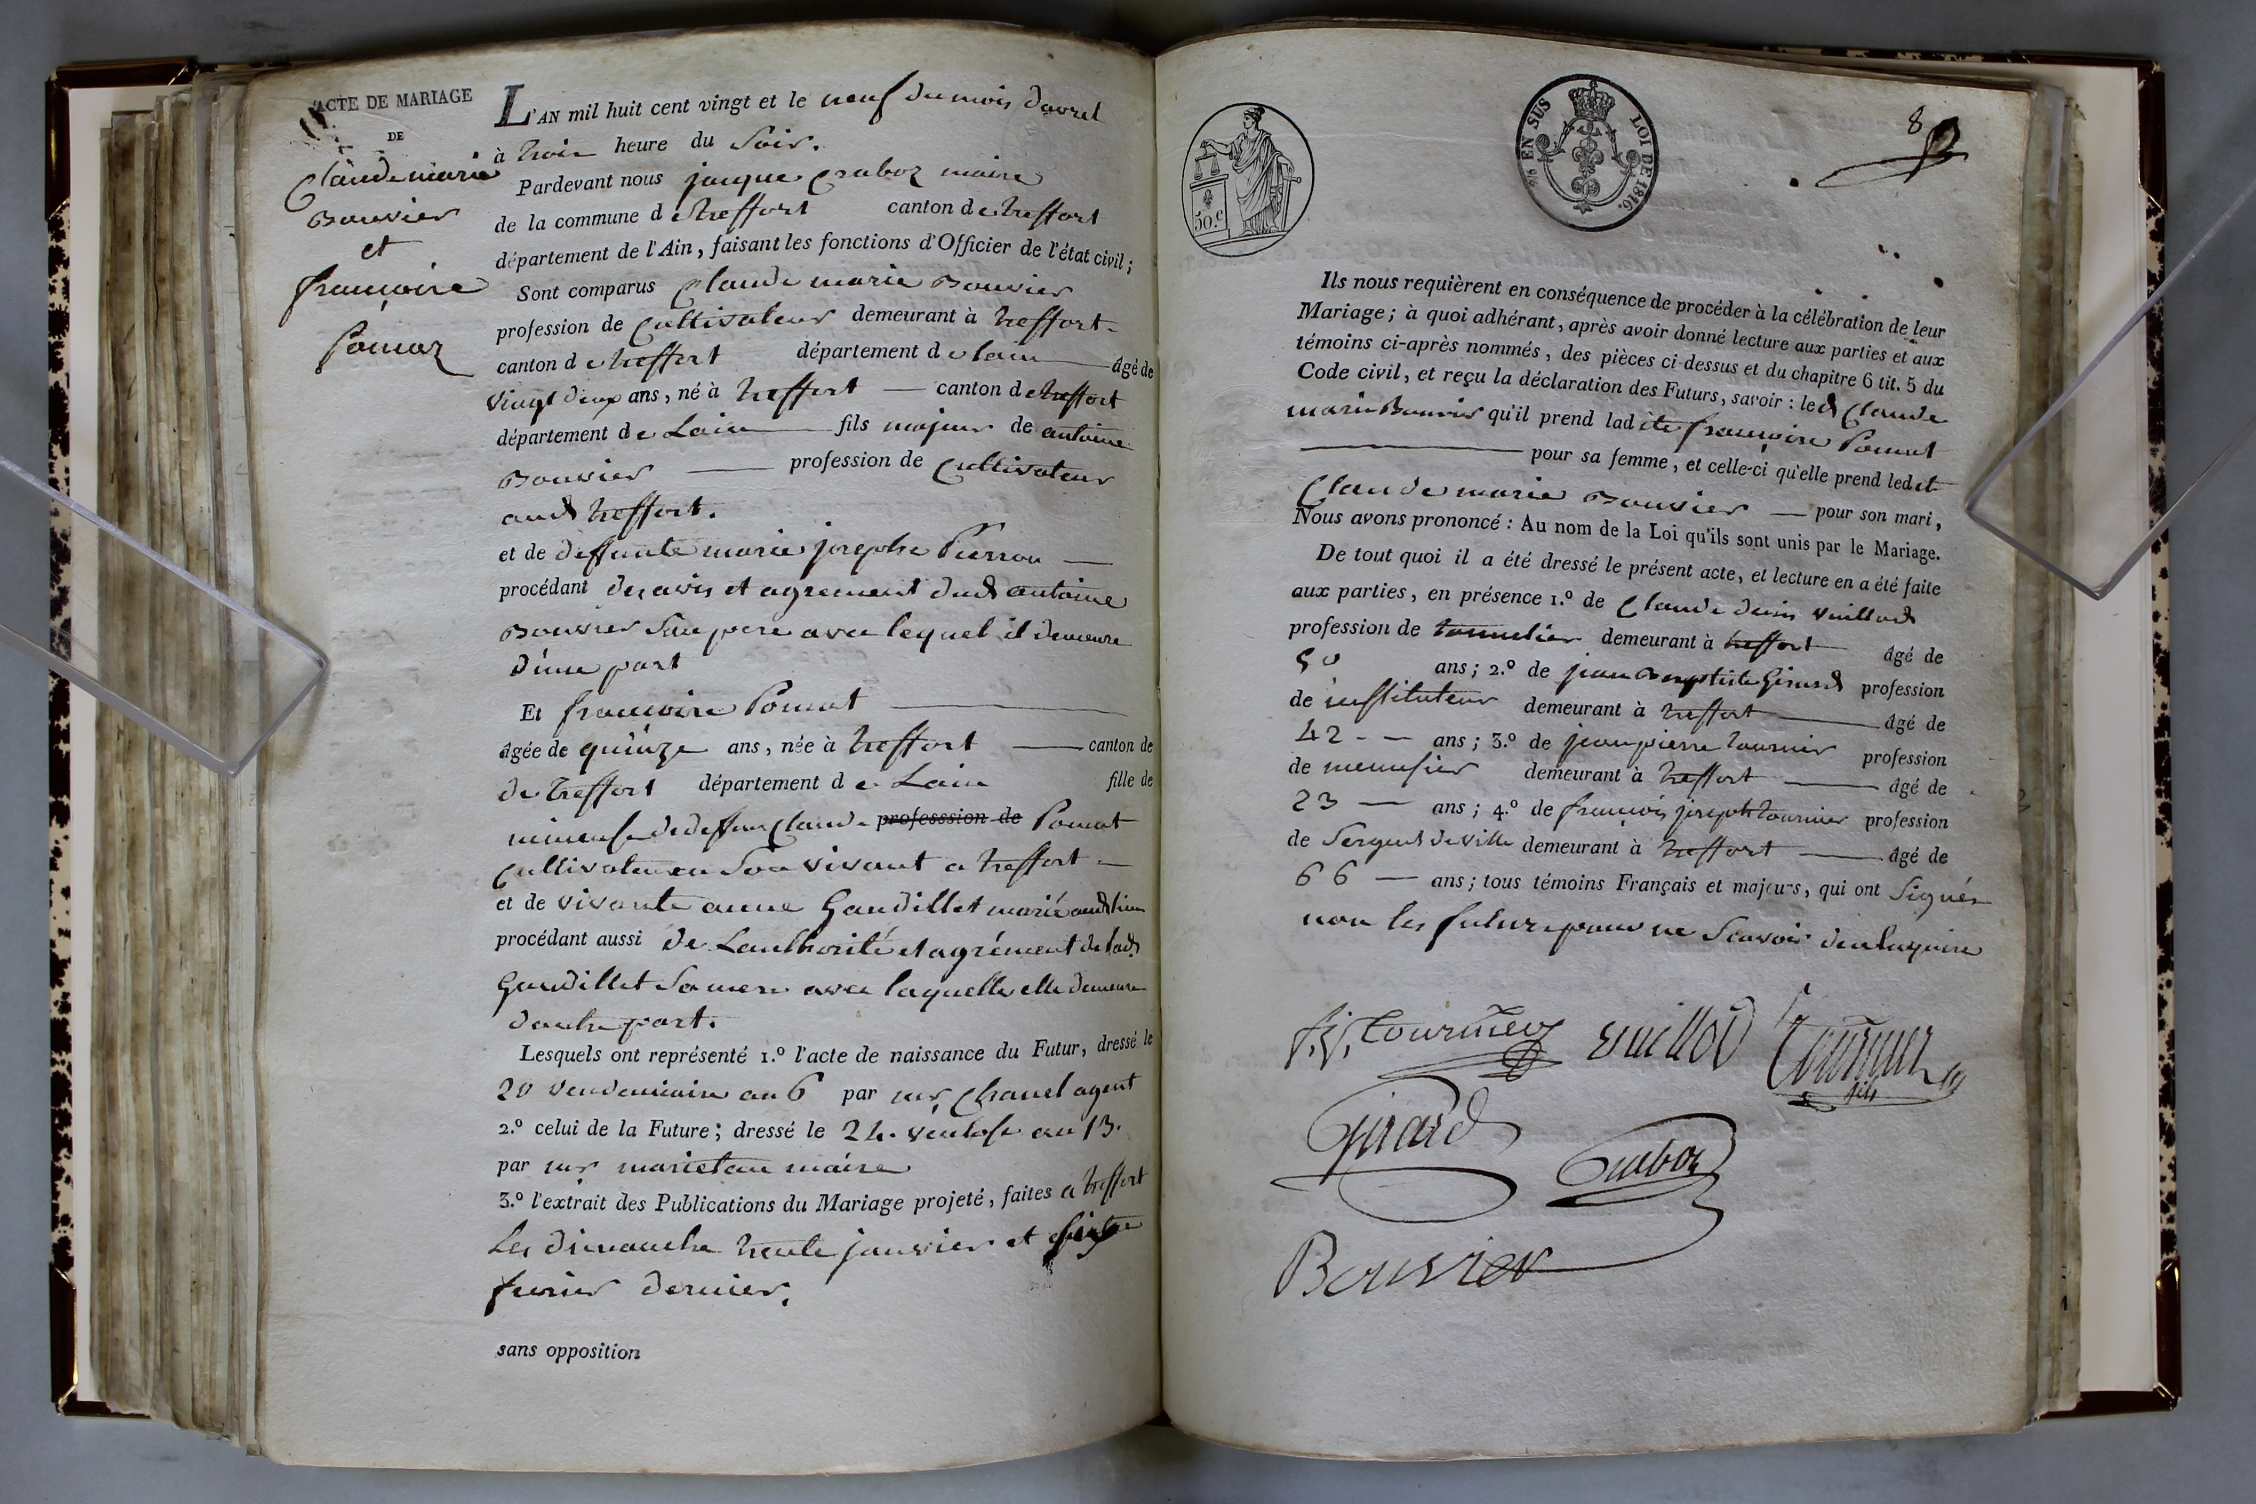 ACTE DE MARIAGE
DE
Claude marie
Bouvier
et
françoise
Pomat
L'AN mil huit cent vingt et le neuf du mois davril
à trois heure du Soir.
Pardevant nous jacque Craboz maire
de la commune de treffort canton de treffort
département de l'Ain, faisant les fonctions d'Officier de l'état civil;
Sont comparus Claude marie Bouvier
profession de Cultivateur demeurant à treffort
canton de treffort département de lain âgé de
vingt deux ans, né à treffort canton de treffort
département de Lain fils majeur de antoine
Bouvier profession de Cultivateur
aud treffort.
et de deffunte marie josephe Pierron
procédant des avis et agrement dud antoine
Bouvier Son pere avec lequel il demeure
d'une part
Et françoise Pomat
âgée de quinze ans, née à treffort canton de
de treffort département de Lain fille de
mineure de deffun Claude professsion de Pomat
Cultivateur en Son vivant a treffort
et de vivante anne Gaudillet mariée aud lieu
procédant aussi de Lauthorité et agrément de lad
Gaudillet Sa mere avec laquelle elle demeure
dautre part.
Lesquels ont représenté 1.º l'acte de naissance du Futur, dressé le
20 vendemiaire an 6 par mr Chanel agent
2.º celui de la Future; dressé le 24 ventose an 13.
par mr marietan maire
3.º l'extrait des Publications du Mariage projeté, faites a treffort
Les dimanche trente janvier et
fevrier dernier.
sans opposition
50.c
¼ EN SUS
LOI DE 1816.
8
Ils nous requièrent en conséquence de procéder à la célébration de leur
Mariage; à quoi adhérant, après avoir donné lecture aux parties et aux
témoins ci-après nommés, des pièces ci-dessus et du chapitre 6 tit. 5 du
Code civil, et reçu la déclaration des Futurs, savoir: led Claude
marie Bouvier qu'il prend ladite françoise Pomat
pour sa femme, et celle-ci qu'elle prend ledit
Claude marie Bouvier pour son mari,
Nous avons prononcé: Au nom de la Loi qu'ils sont unis par le Mariage.
De tout quoi il a été dressé le présent acte, et lecture en a été faite
aux parties, en présence 1.º de Claude denis vuillod
profession de tonnelier demeurant à treffort âgé de
50 ans; 2.º de jean Baptiste Girard profession
de instituteur demeurant à treffort âgé de
42 ans; 3.º de jean pierre tournier profession
de menusier demeurant à treffort âgé de
23 ans; 4.º de francois joseph tournier profession
de Sergent de ville demeurant à treffort âgé de
66 ans; tous témoins Français et majeurs, qui ont Signés
non les futurs pour ne Scavoir de ce enquis
f. j. tournier vuillod tournier
fils
Girard
Craboz
Bouvier